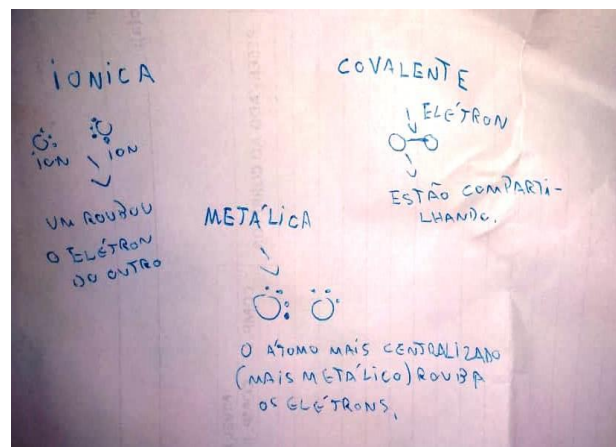 IONICA
ION
ION
UM ROUBOU
O ELÉTRON
DO OUTRO
COVALENTE
ELÉTRON
ESTÃO COMPARTI-
LHANDO.
METÁLICA
O ÁTOMO MAIS CENTRALIZADO
(MAIS METÁLICO) ROUBA
OS ELÉTRONS.